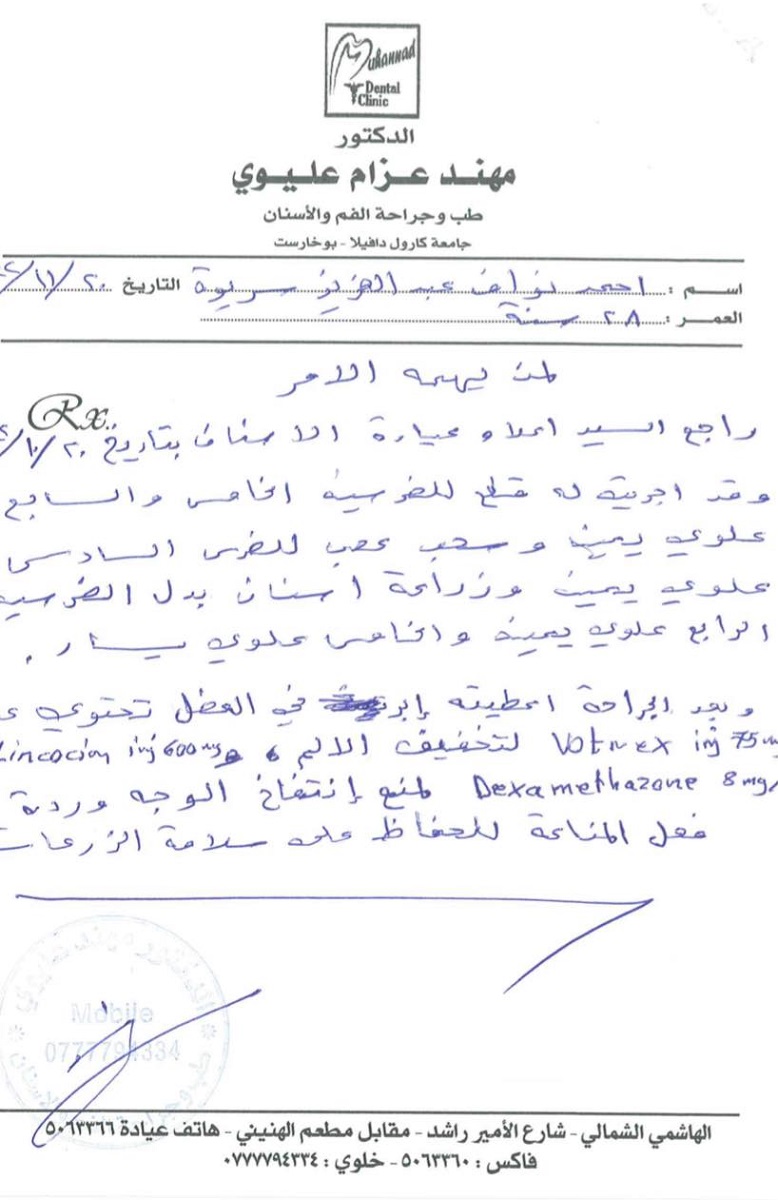 Muhannad
Dental
Clinic
الدكتور
مهند عزام عليوي
طب وجراحة الفم والأسنان
جامعة كارول دافيلا - بوخارست
اسم : احمد نواف عبد العزيز التاريخ ٢٠/١١/
العمر : ٢٨ سنة
لمن يهمه الامر
Rx.
راجع السيد اعلاه عيادة الاسنان بتاريخ ٢٠/١٠/
وقد اجريت له قلع للضرسين الخامس والسابع
علوي يمين وسحب عصب للضرس السادس
علوي يمين وزراعة اسنان بدل الضرسين
الرابع علوي يمين والخامس علوي يسار .
وبعد الجراحة اعطيته إبر في العضل تحتوي
Votrex inj 75 mg لتخفيف الالم و Lincocin inj 600 mg
Dexamethazone 8 mg/ لمنع إنتفاخ الوجه وردة
فعل المناعة للحفاظ على سلامة الزرعات
الدكتور مهند عليوي
Mobile
0777794334
الهاشمي الشمالي - شارع الأمير راشد - مقابل مطعم الهنيني - هاتف عيادة ٥٠٦٣٣٦٦
فاكس : ٥٠٦٣٣٦٠ - خلوي : ٠٧٧٧٧٩٤٣٣٤